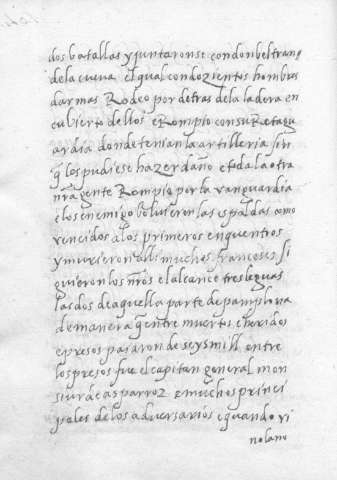 dos batallas y juntaronse con don beltran
de la cueva el qual con dozientos hombres
darmas Rodeo por detras de la ladera en
cubierto dellos e Rompio con su Retagu
ardia donde tenian la artilleria sin
q̃ los pudiese hazer daño e toda la otra
nr̃a gente Rompio por la vanguardia
e los enemigos bolvieron las espaldas como
vencidos a los primeros enquentros
y murieron alli muchos franceses. si
guieron los nr̃os el alcance tres leguas
las dos de aquella parte de pamplona
de manera q̃ entre muertos e heridos
e presos pasaron de seys mill entre
los presos fue el capitan general mon
siur de asparroz e muchos princi
pales de los adversarios e quando vi
no la no